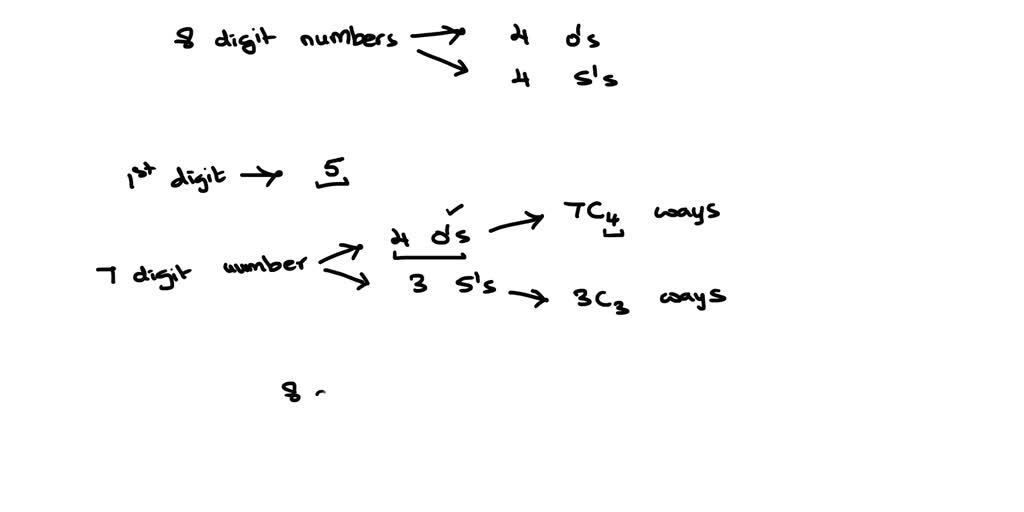 8 digit numbers → 4 0's
→ 4 5's
1st digit → 5
4 0's ✓ → 7C4 ways
7 digit number
3 5's → 3C3 ways
8